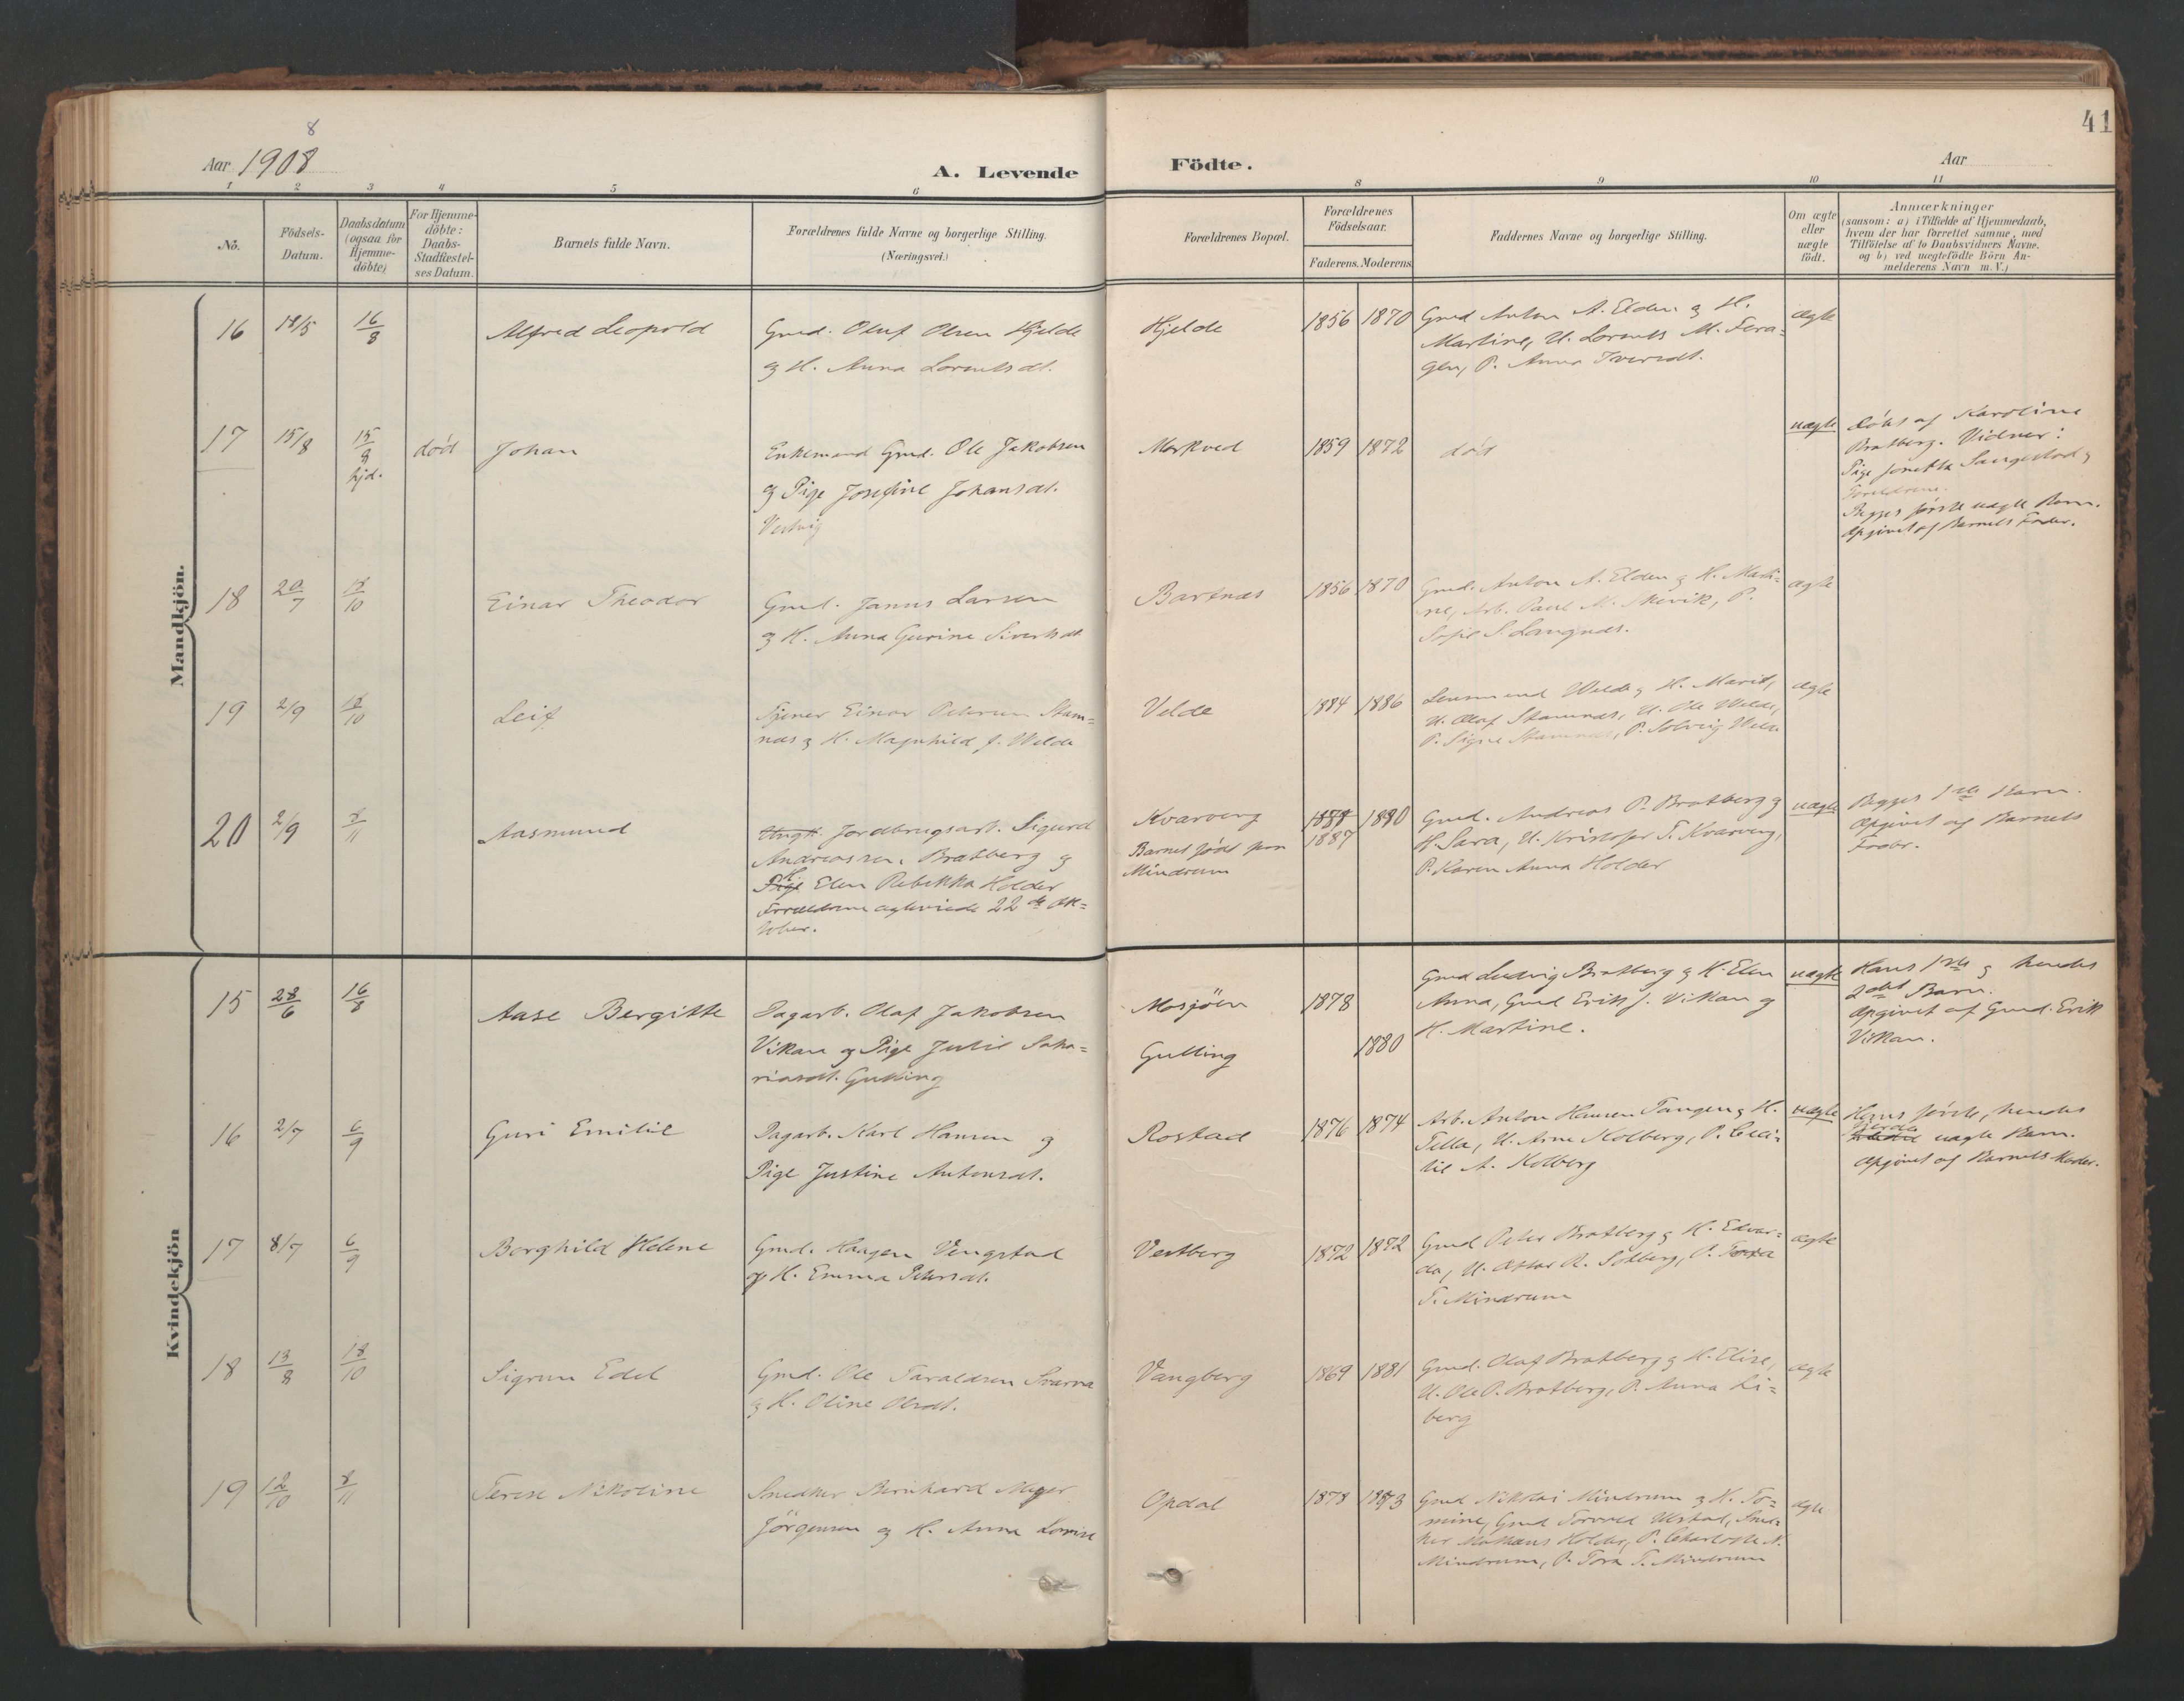 41
8
Aar 1908
A. Levende
Födte.
Aar
1 2 3 4 5 6 8 9 10 11
No.
Födsels-
Datum.
Daabsdatum
(ogsaa for
Hjemme-
döbte)
For Hjemme-
döbte:
Daabs-
Stadfæstel-
ses Datum.
Barnets fulde Navn.
Forældrenes fulde Navne og borgerlige Stilling.
(Næringsvei.)
Forældrenes Bopæl.
Forældrenes
Födselsaar.
Faderens. Moderens.
Faddernes Navne og borgerlige Stilling.
Om ægte
eller
uægte
födt.
Anmærkninger
(saasom: a) i Tilfælde af Hjemmedaab,
hvem der har forrettet samme, med
Tilföielse af to Daabsvidners Navne.
og b) ved uægtefödte Börn An-
melderens Navn m.V.)
Mandkjön.
16 18/5 16/8 Alfred Leopold
Gmd. Oluf Olsen Hjelde
og H. Anna Lorentsdt.
Hjelde 1856 1870
Gmd Anton A. Elden og H.
Martine, U. Lorents M. Fera-
gen, P. Anna Iversdt.
ægte
17 15/8 15/8 hjd. död Johan
Enkemand Gmd. Ole Jakobsen
og Pige Josefine Johansdt.
Markved 1859 1872
död
uægte
döbt af Karoline
Bratberg. Vidner:
Pige
Forældrene.
Begges förste uægte Barn.
Opgivet af Barnets Fader.
18 20/7 18/10 Einar Theodor
Gmd. Janus Larsen
og H. Anna Gurine Sivertsdt
Bartnes 1856 1870
Gmd. Anton A. Elden og H. Marti-
ne, Arb. Paul M. Skevik, P.
Sofie S. Langnes.
ægte
19 2/9 18/10 Leif
Tjener Einar Petersen Stam-
næs og H. Magnhild J. Welde
Velde 1884 1886
Lensmand Welde og H. Marit,
U. Olaf Stamnæs, U. Ole Welde,
P. Signe Stamnæs, P. Solveig Welde
ægte
20 2/9 8/11 Aasmund
Jordbrugsarb. Sigurd
Andreassen Bratberg og
H. Pige Elen Rebekka Holder
Forældrene ægteviede 22de Ok-
tober.
Kvarving
Barnet födt paa
Mindrum
1887 1880
Gmd. Andreas P. Bratberg og
H. Sara, U. Kristofer T. Kvarving,
P. Karen Anna Holder
uægte
Begges 1ste Barn.
Opgivet af Barnets
Kvindekjön
15 28/6 16/8 Aase Bergitte
Dagarb. Olaf Jakobsen
Vikan og Pige Julie Saka-
riasdt. Gulling
Mosjöen 1878
Gulling 1880
Gmd Ludvig Bratberg og H. Elen
Anna, Gmd Erik J. Vikan og
H. Martine.
uægte
Hans 1ste og hendes
2det Barn.
Opgivet af Gmd. Erik
Vikan.
16 2/7 6/9 Guri Emilie
Dagarb. Karl Hansen og
Pige Justine Antonsdt.
Rostad 1876 1874
Arb. Anton Hansen Tangen og H.
Tella, U. Arne Kolberg, P. Ceci-
lie A. Kolberg
uægte
Hans förste, hendes
uægte Barn.
Opgivet af Barnets Moder.
17 8/7 6/9 Borghild Helene
Gmd. Haagen Vengstad
og H. Emma Petersdt.
Vestberg 1872 1872
Gmd Peter Bratberg og H. Edvar-
da, U. Oskar R. Solberg, P. Tora
T. Mindrum
ægte
18 13/8 18/10 Sigrun Edel
Gmd. Ole Taraldsen Svarva
og H. Oline Olsdt.
Vangberg 1869 1881
Gmd. Olaf Bratberg og H. Elise,
U. Ole O. Bratberg, P. Anna Li-
berg
ægte
19 12/10 8/11 Terese Nikoline
Snedker Bernhard Meyer
Jörgensen og H. Anna Lovise
Opdal 1878 1873
Gmd Nikolai Mindrum og H. To-
mine, Gmd Torvald Ulstad, Sned-
ker Mathæus Holder, P. Charlotte N.
Mindrum, P. Tora T. Mindrum
ægte